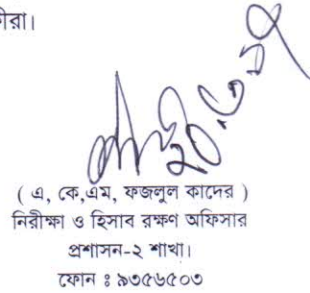 ীরা।
( এ, কে,এম, ফজলুল কাদের )
নিরীক্ষা ও হিসাব রক্ষণ অফিসার
প্রশাসন-২ শাখা।
ফোন ঃ ৯৩৫৬৫০৩